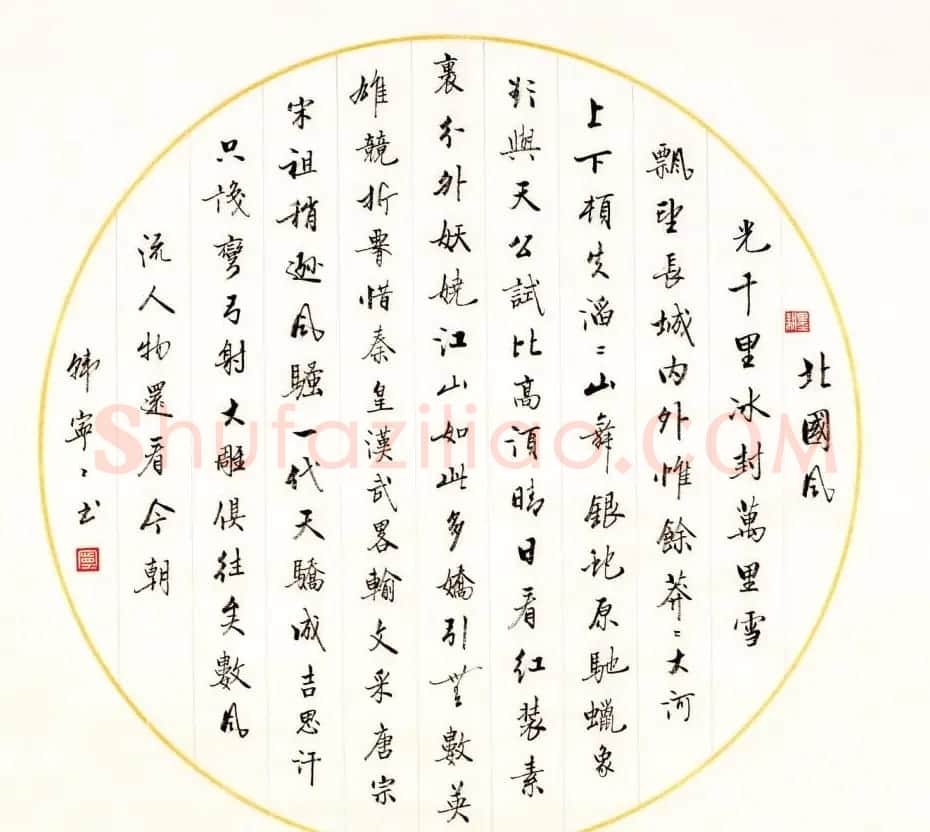 北國風
光千里冰封萬里雪
飄望長城内外惟餘莽〻大河
上下頓失滔〻山舞銀蛇原馳蠟象
欲與天公試比高須晴日看紅裝素
裹分外妖嬈江山如此多嬌引無數英
雄競折腰惜秦皇漢武畧輸文采唐宗
宋祖稍遜風騷一代天驕成吉思汗
只識彎弓射大雕俱往矣數風
流人物還看今朝
韓寧〻書
Shufaziliao.COM